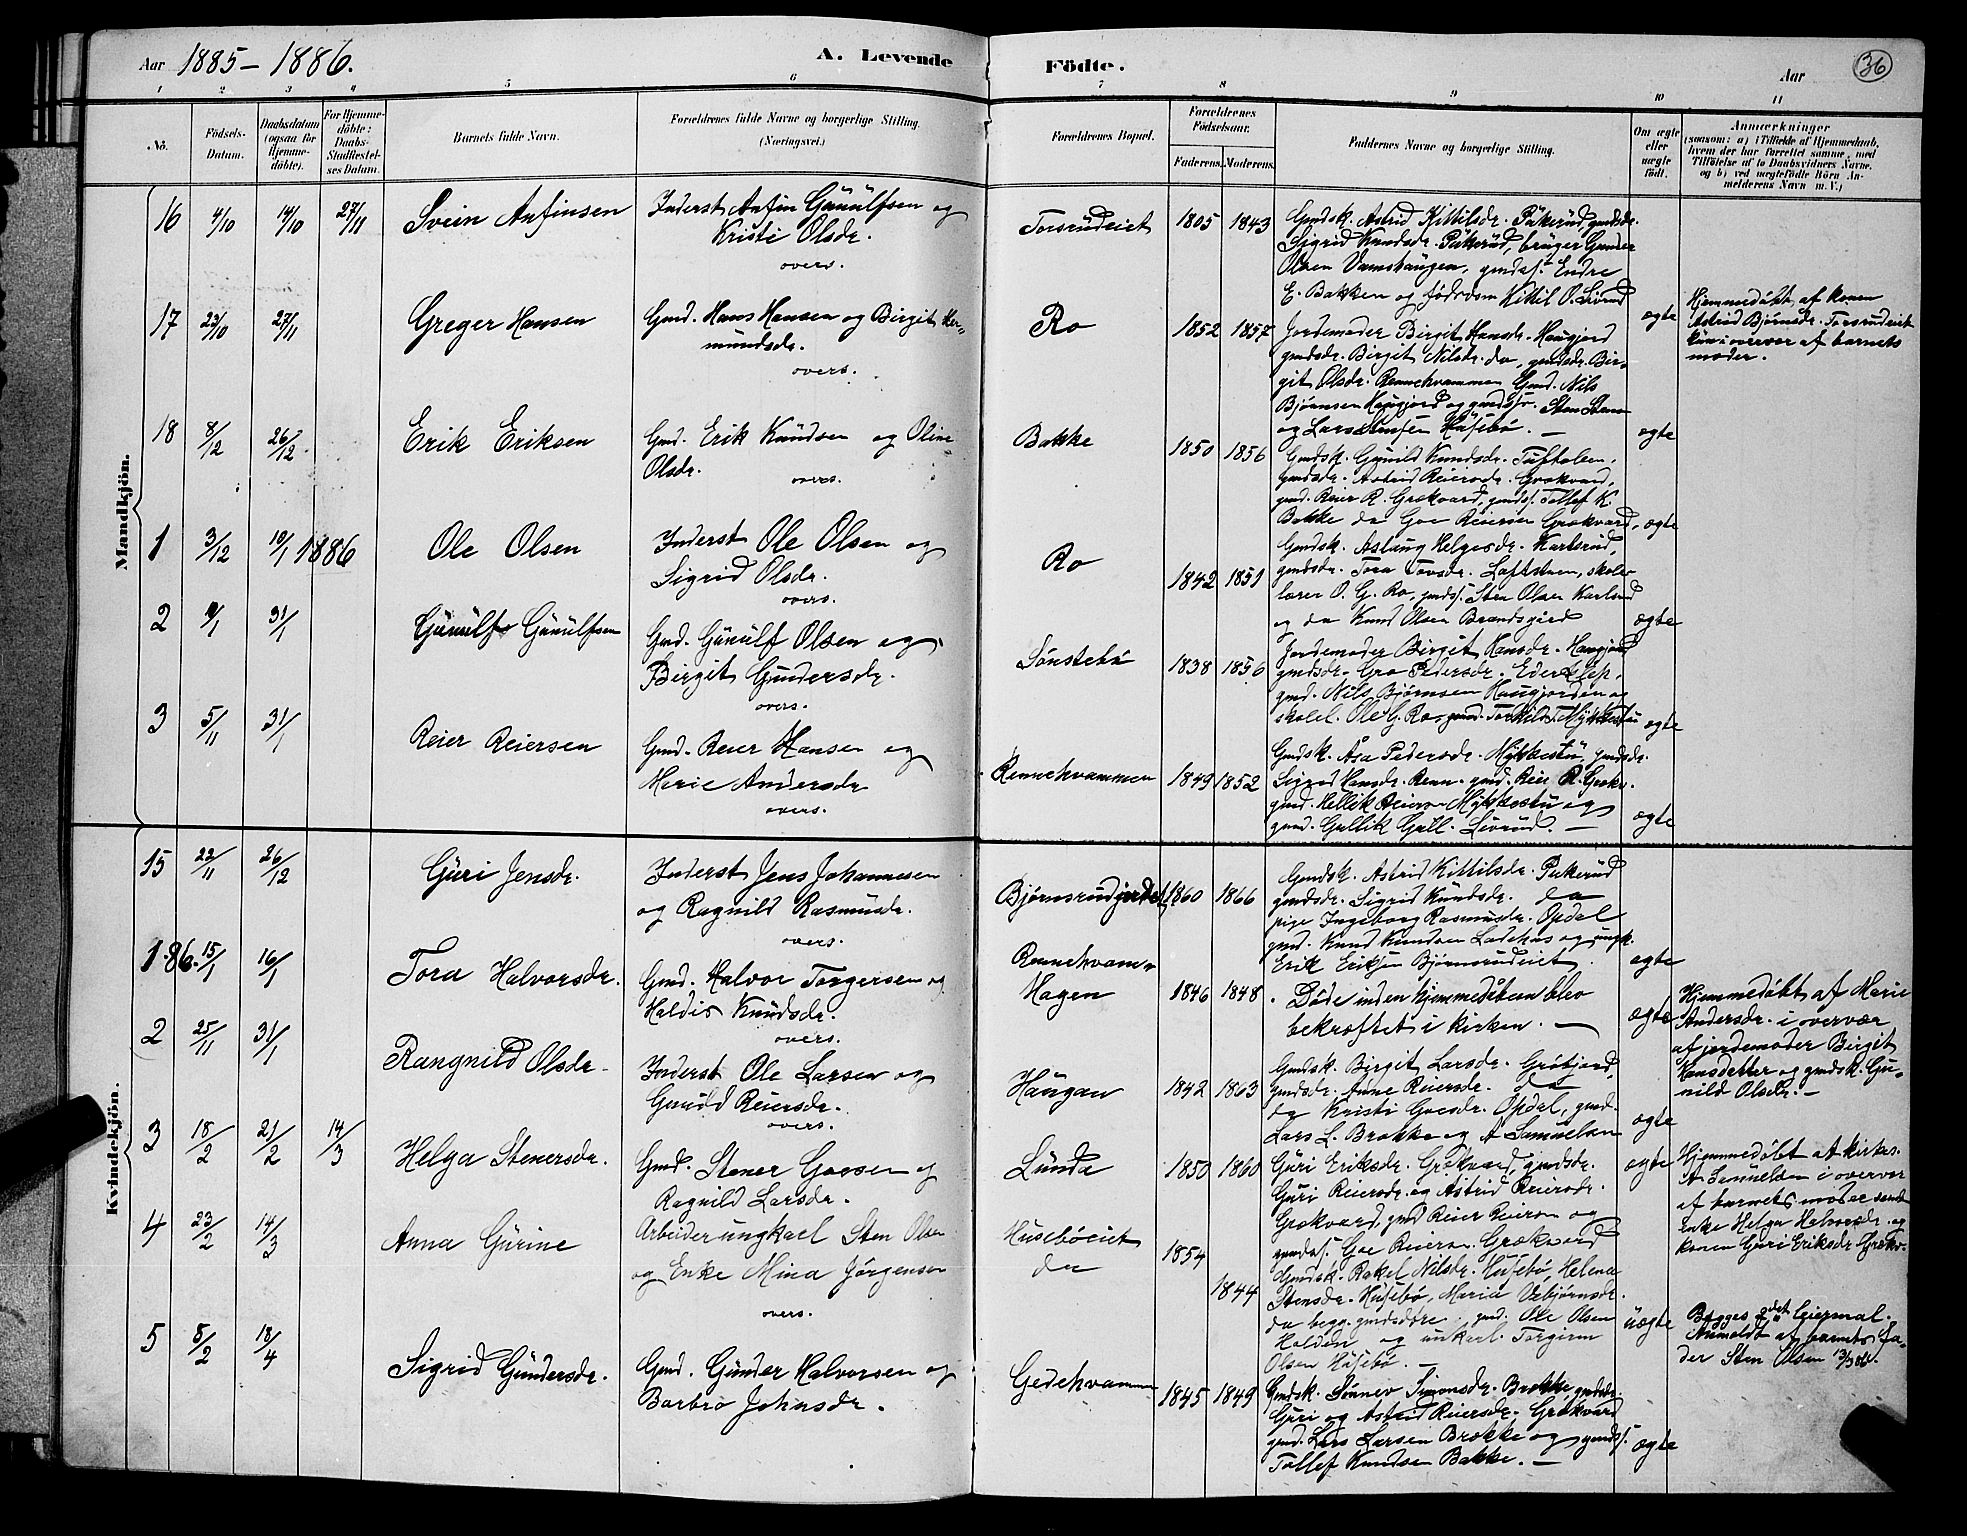 Aar 1885 - 1886. A. Levende Födte. Aar 36
1 2 3 4 5 6 7 8 9 10 11
No. Födsels-Datum. Daabsdatum (ogsaa for Hjemme-döbte). For Hjemme-döbte: Daabs-Stadfæstel-ses Datum. Barnets fulde Navn. Forældrenes fulde Navne og borgerlige Stilling. (Næringsvei.) Forældrenes Bopæl. Forældrenes Födselsaar. Faderens. Moderens. Faddernes Navne og borgerlige Stilling. Om ægte eller uægte födt. Anmærkninger (saasom: a) i Tilfælde af Hjemmedaab, hvem der har forrettet samme, med Tilföielse af to Daabsvidners Navne, og b) ved uægtefödte Börn An-melderens Navn m. V.)
Mandkjön.
16 4/10 14/10 27/11 Svein Anfinsen Inderst Anfin Gunulfsen og
Kristi Olsdr.
overs.
Torsrudeiet 1805 1843
Gmdsk. Astrid Kittilsdr. Pukerud, gmdsdr.
Sigrid Knudsdr. Pukerud, bruger Gunder
Olsen Vamshaugen, gmds. Endre
E. Bakken og födrdsm Kittil O. Livrud
ægte
Hjemmedöbt af konen
Astrid Björnsdr. Torsrudeiet
kun i overvær af barnets
moder.
17 23/10 27/11 Greger Hansen Gmd. Hans Hansen og Birgit Her-
mundsdr.
overs.
Ro 1852 1857
Jordemoder Birgit Hansdr. Haugjord
gmdsdr. Birgit Nilsdr. do, gmdsdr. Bir-
git Olsdr. Rennehvammen Gmd. Nils
Björnsen Haugjord og gmdss. Sten Stens
og Lars Husebö. —
ægte
18 8/12 26/12 Erik Eriksen Gmd. Erik Knudsen og Oline
Olsdr.
overs.
Bakke 1850 1856
Gmdsk. Gunild Knudsdr. Tuftolien,
gmdsdr. Astrid Reiersdr. Grøkvard,
gmd. Reier R. Grøkvard, gmdss. Tollef K.
Bakke do Goe Reiersen Grøkvard.
ægte
1 3/12 10/1 1886 Ole Olsen Inderst Ole Olsen og
Sigrid Olsdr.
overs.
Ro 1842 1851
Gmdsk. Aslaug Helgesdr. Karlsrud,
gmdsdr. Tora Tovsdr. Loftstuen, skole-
lærer O. G. Ro, gmdss. Sten Olsen Karlsrud
og do Knud Olsen Brandsgjerd
ægte
2 9/1 31/1 Gunulf Gunulfsen Gmd. Gunulf Olsen og
Birgit Gundersdr.
overs.
Sönstebö 1838 1856
Jordemoder Birgit Hansdr. Haugjord
gmdsdr. Gro Pedersdr.
gmd. Nils Björnsen Haugjorden og
skolel. Ole G. Ro og gmd. Torkild T. Mykkestu
ægte
3 5/11 31/1 Reier Reiersen Gmd. Reier Hansen og
Marie Andersdr.
overs.
Rennehvammen 1849 1852
Gmdsk. Åsa Pedersdr. Mykkestu, gmdsdr.
Sigrid Hansdr. Renn. gmd. Reier R. Grøkv.
gmd. Hellik Reiers Mykkestu og
gmd. Gullik Gull. Livrud. —
ægte
Kvindekjön.
15 22/11 26/12 Guri Jensdr. Inderst Jens Johannesen
og Ragnild Rasmusdr.
overs.
Bjørnsrudjordet 1860 1866
Gmdsk. Astrid Kittilsdr. Pukerud
gmdsdr. Sigrid Knudsdr. do
pige Ingeborg Rasmusdr. Opdal
gmd. Knud Knudsen Ladehus og ungk.
Erik Eriksen Bjørnsrudeiet
ægte
1 86. 15/1 16/1 Tora Halvorsdr. Gmd. Halvor Torgersen og
Haldis Knudsdr.
overs.
Rennehvam-
Hagen 1846 1848
Döde inden hjemmedåben blev
bekræftet i kirken. —
ægte
Hjemmedöbt af Marie
Andersdr. i overvær
af jordemoder Birgit
Hansdatter og gmdsk. Gu-
nild Olsdr. —
2 25/11 31/1 Rangnild Olsdr. Inderst Ole Larsen og
Gunild Reiersdr.
overs.
Haugan 1842 1863
Gmdsk. Birgit Larsdr. Gröтjord,
gmdsdr. Anne Reiersdr. do
do Kristi Goesdr. Opdal, gmd.
Lars L. Brøkke og A Samuelsen
ægte
3 18/2 21/2 14/3 Helga Stenersdr. Gmd. Stener Goesen og
Ragnild Larsdr.
Lunda 1850 1860
Guri Eriksdr. Grøkvard, gmdsdr.
Guri Reiersdr. og Astrid Reiersdr.
Grøkvard, gmd Reier Reiersen og
gmdss. Goe Reiersen Grøkvard
ægte
Hjemmedöbt af kirkes.
A Samuelsen i overvær
af barnets moder samt
enke Helga Halvorsdr. og
konen Guri Eriksdr. Grøkv.
4 23/2 14/3 Anna Gurine Arbeider ungkarl Sten Olsen
og Enke Mina Jörgensen
overs.
Huseböeiet
do 1854
1844
Gmdsk. Rakel Nilsdr. Husebö, Helena
Stensdr. Husebö, Maria Vebjörnsdr.
do begge gmdsdöre, gmd. Ole Olsen
Halden og unkarl Torgrim
Olsen Husebö. —
uægte
Begges 2det leiermal.
Anmeldt af barnets fa-
der Sten Olsen 13/3 86.
5 5/2 18/4 Sigrid Gundersdr. Gmd. Gunder Halvorsen og
Barbro Johnsdr.
Gedehvammen 1845 1849
Gmdsk. Sönnev Simonsdr. Brøkke, gmdsdr.
Guri og Astrid Reiersdr. Grøkvard
gmd. Lars Larsen Brøkke og gmdss.
Tollef Knudsen Bakke. —
ægte